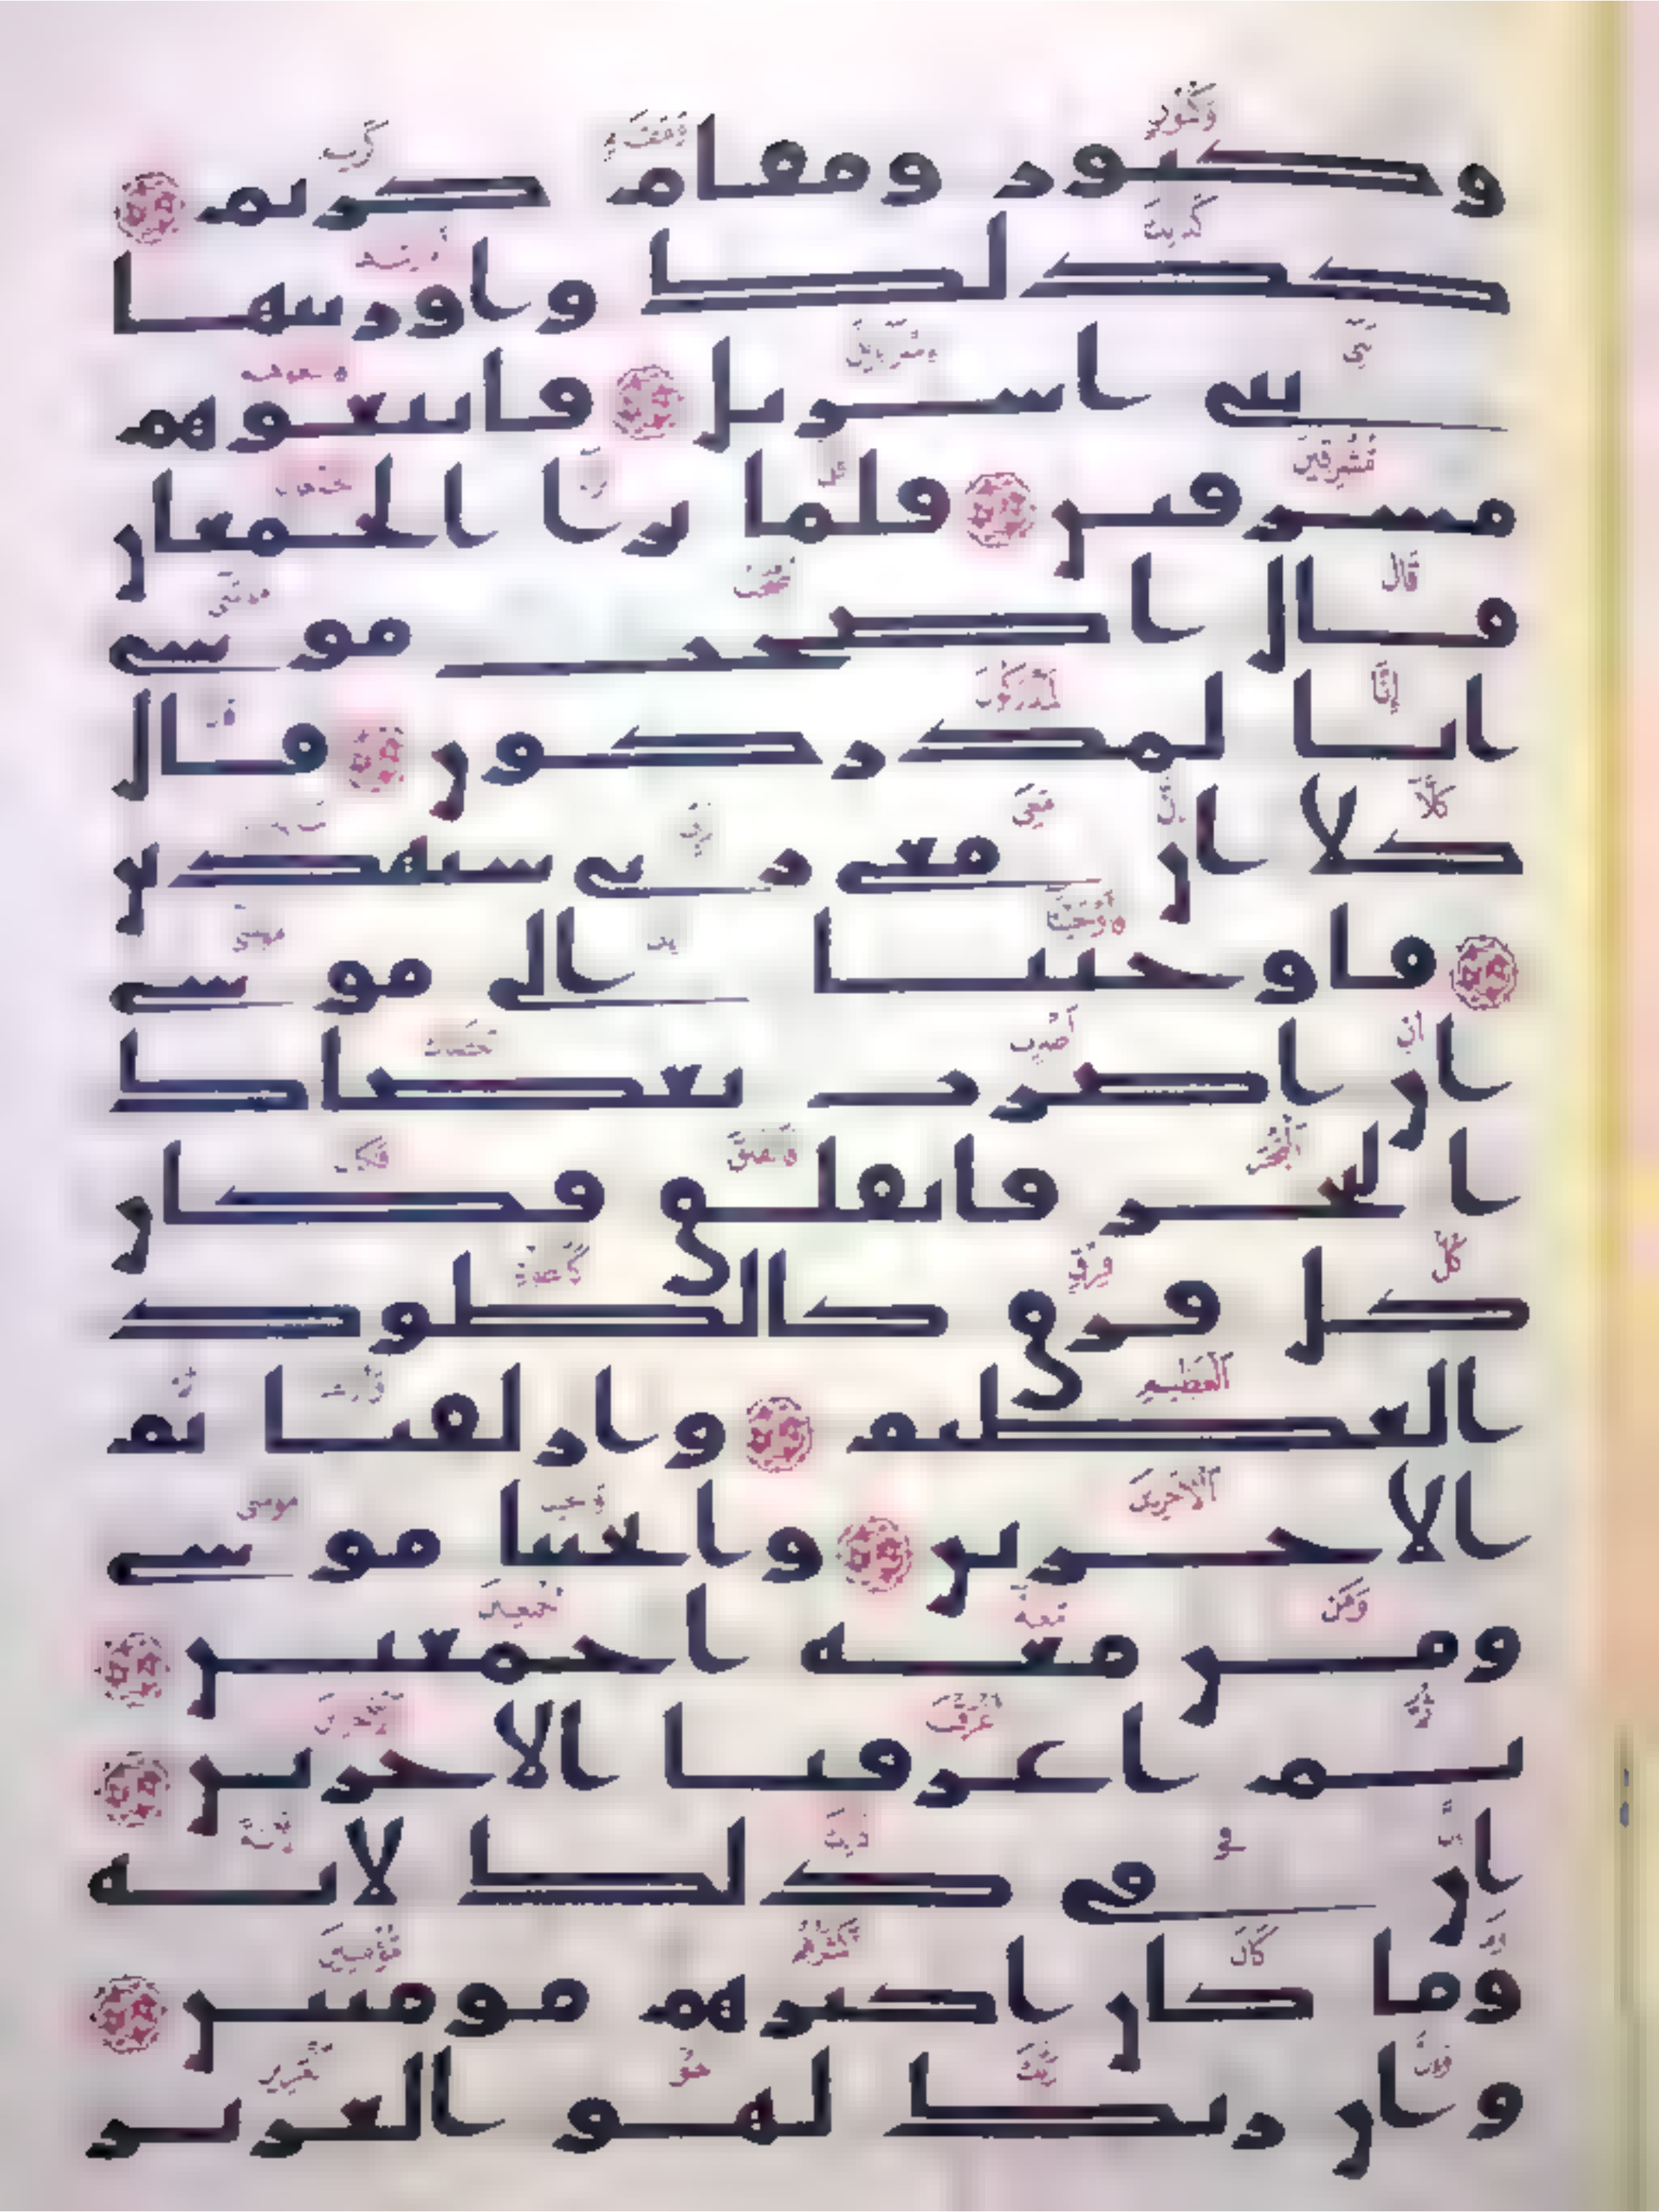 وكنوز ومقام كريم
كذلك واورثنها
بني اسريل فاتبعوهم
مشرقين فلما ترا الجمعان
قال اصحب موسى
انا لمدركون قال
كلا ان معي ربي سيهدين
فاوحينا الى موسى
ان اضرب بعصاك
البحر فانفلق فكان
كل فرق كالطود
العظيم وازلفنا ثم
الاخرين وانجينا موسى
ومن معه اجمعين
ثم اغرقنا الاخرين
ان في ذلك لاية
وما كان اكثرهم مومنين
وان ربك لهو العزيز